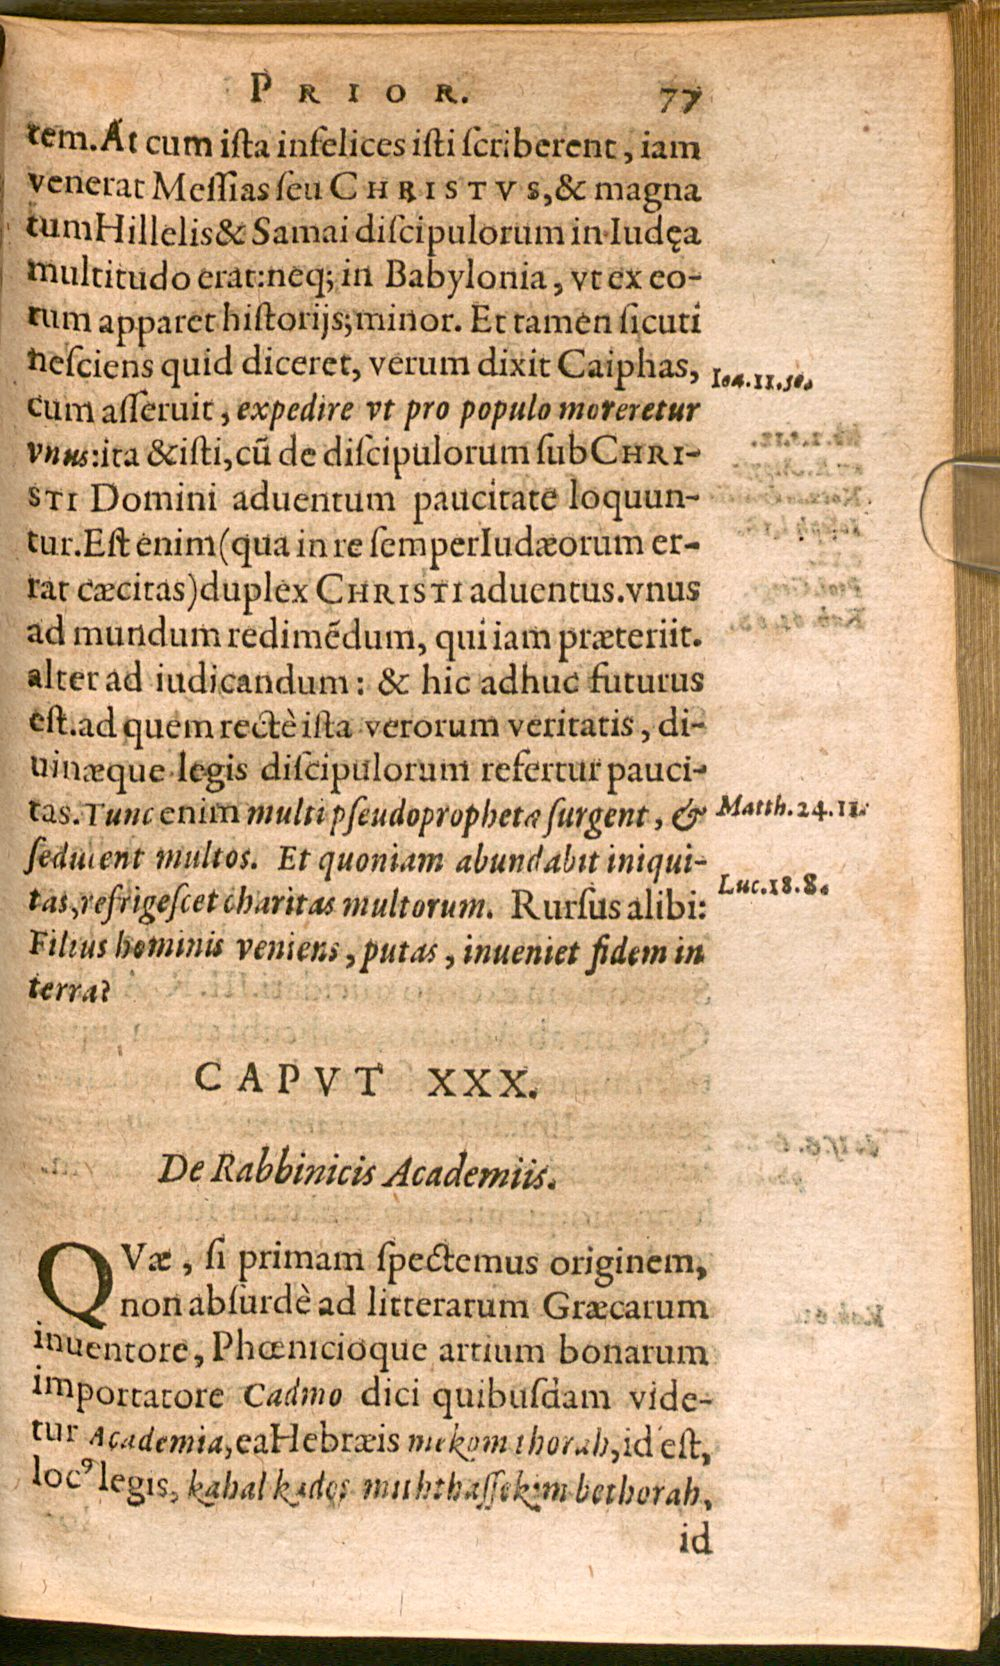 PRIOR. 77
tem. At cum ista infelices isti scriberent, iam
venerat Messias seu CHRISTVS, & magna
tum Hillelis & Samai discipulorum in Iudęa
multitudo erat: neq; in Babylonia, vt ex eo-
rum apparet historijs; minor. Et tamen sicuti
nesciens quid diceret, verum dixit Caiphas,
Ioa.11.50.
cum asseruit, expedire vt pro populo moreretur
vnus: ita & isti, cũ de discipulorum sub CHRI-
STI Domini aduentum paucitate loquun-
tur. Est enim (qua in re semper Iudæorum er-
rat cæcitas) duplex CHRISTI aduentus. vnus
ad mundum redimẽdum, qui iam præteriit.
alter ad iudicandum: & hic adhuc futurus
est. ad quem rectè ista verorum veritatis, di-
uinæque legis discipulorum refertur pauci-
tas. Tunc enim multi pseudoprophetæ surgent, &
Matth.24.11.
seducent multos. Et quoniam abundabit iniqui-
Luc.18.8.
tas, refrigescet charitas multorum. Rursus alibi:
Filius hominis veniens, putas, inueniet fidem in
terra?
CAPVT XXX.
De Rabbinicis Academiis.
QVæ, si primam spectemus originem,
non absurdè ad litterarum Græcarum
inuentore, Phœnicioque artium bonarum
importatore Cadmo dici quibusdam vide-
tur Academia, ea Hebræis mekom thorah, id est,
locꝰ legis, kahal kados bethorah,
id